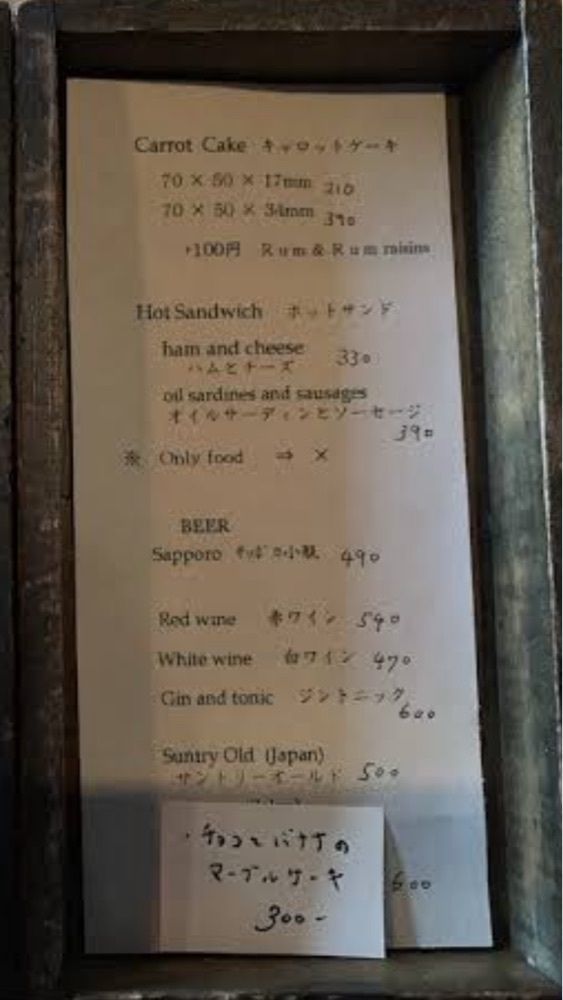 Carrot Cake キャロットケーキ
70 × 50 × 17mm 210
70 × 50 × 34mm 390
+100円 Rum & Rum raisins
Hot Sandwich ホットサンド
ham and cheese 330
ハムとチーズ
oil sardines and sausages
オイルサーディンとソーセージ
390
※ Only food ⇒ ×
BEER
Sapporo サッポロ小瓶 490
Red wine 赤ワイン 540
White wine 白ワイン 470
Gin and tonic ジントニック
600
Suntry Old (Japan)
サントリーオールド 500
・チョコとバナナの
マーブルケーキ 600
300-